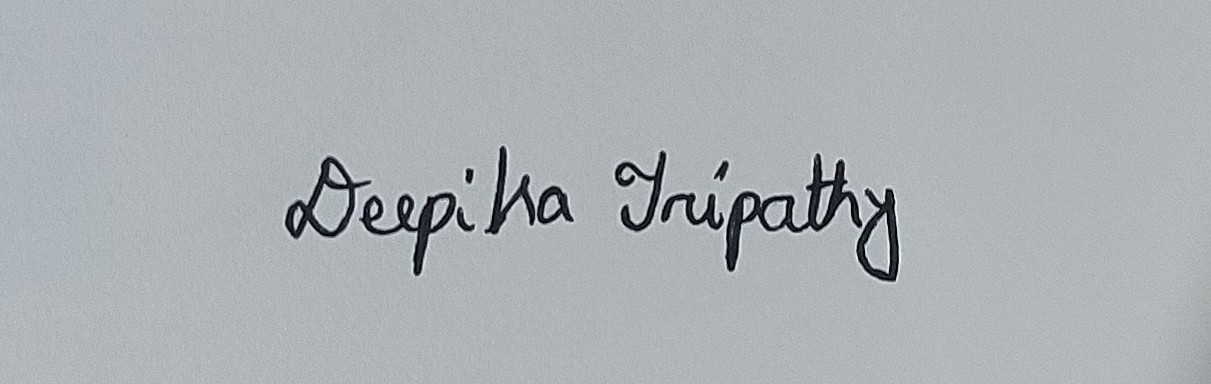 Deepika Tripathy